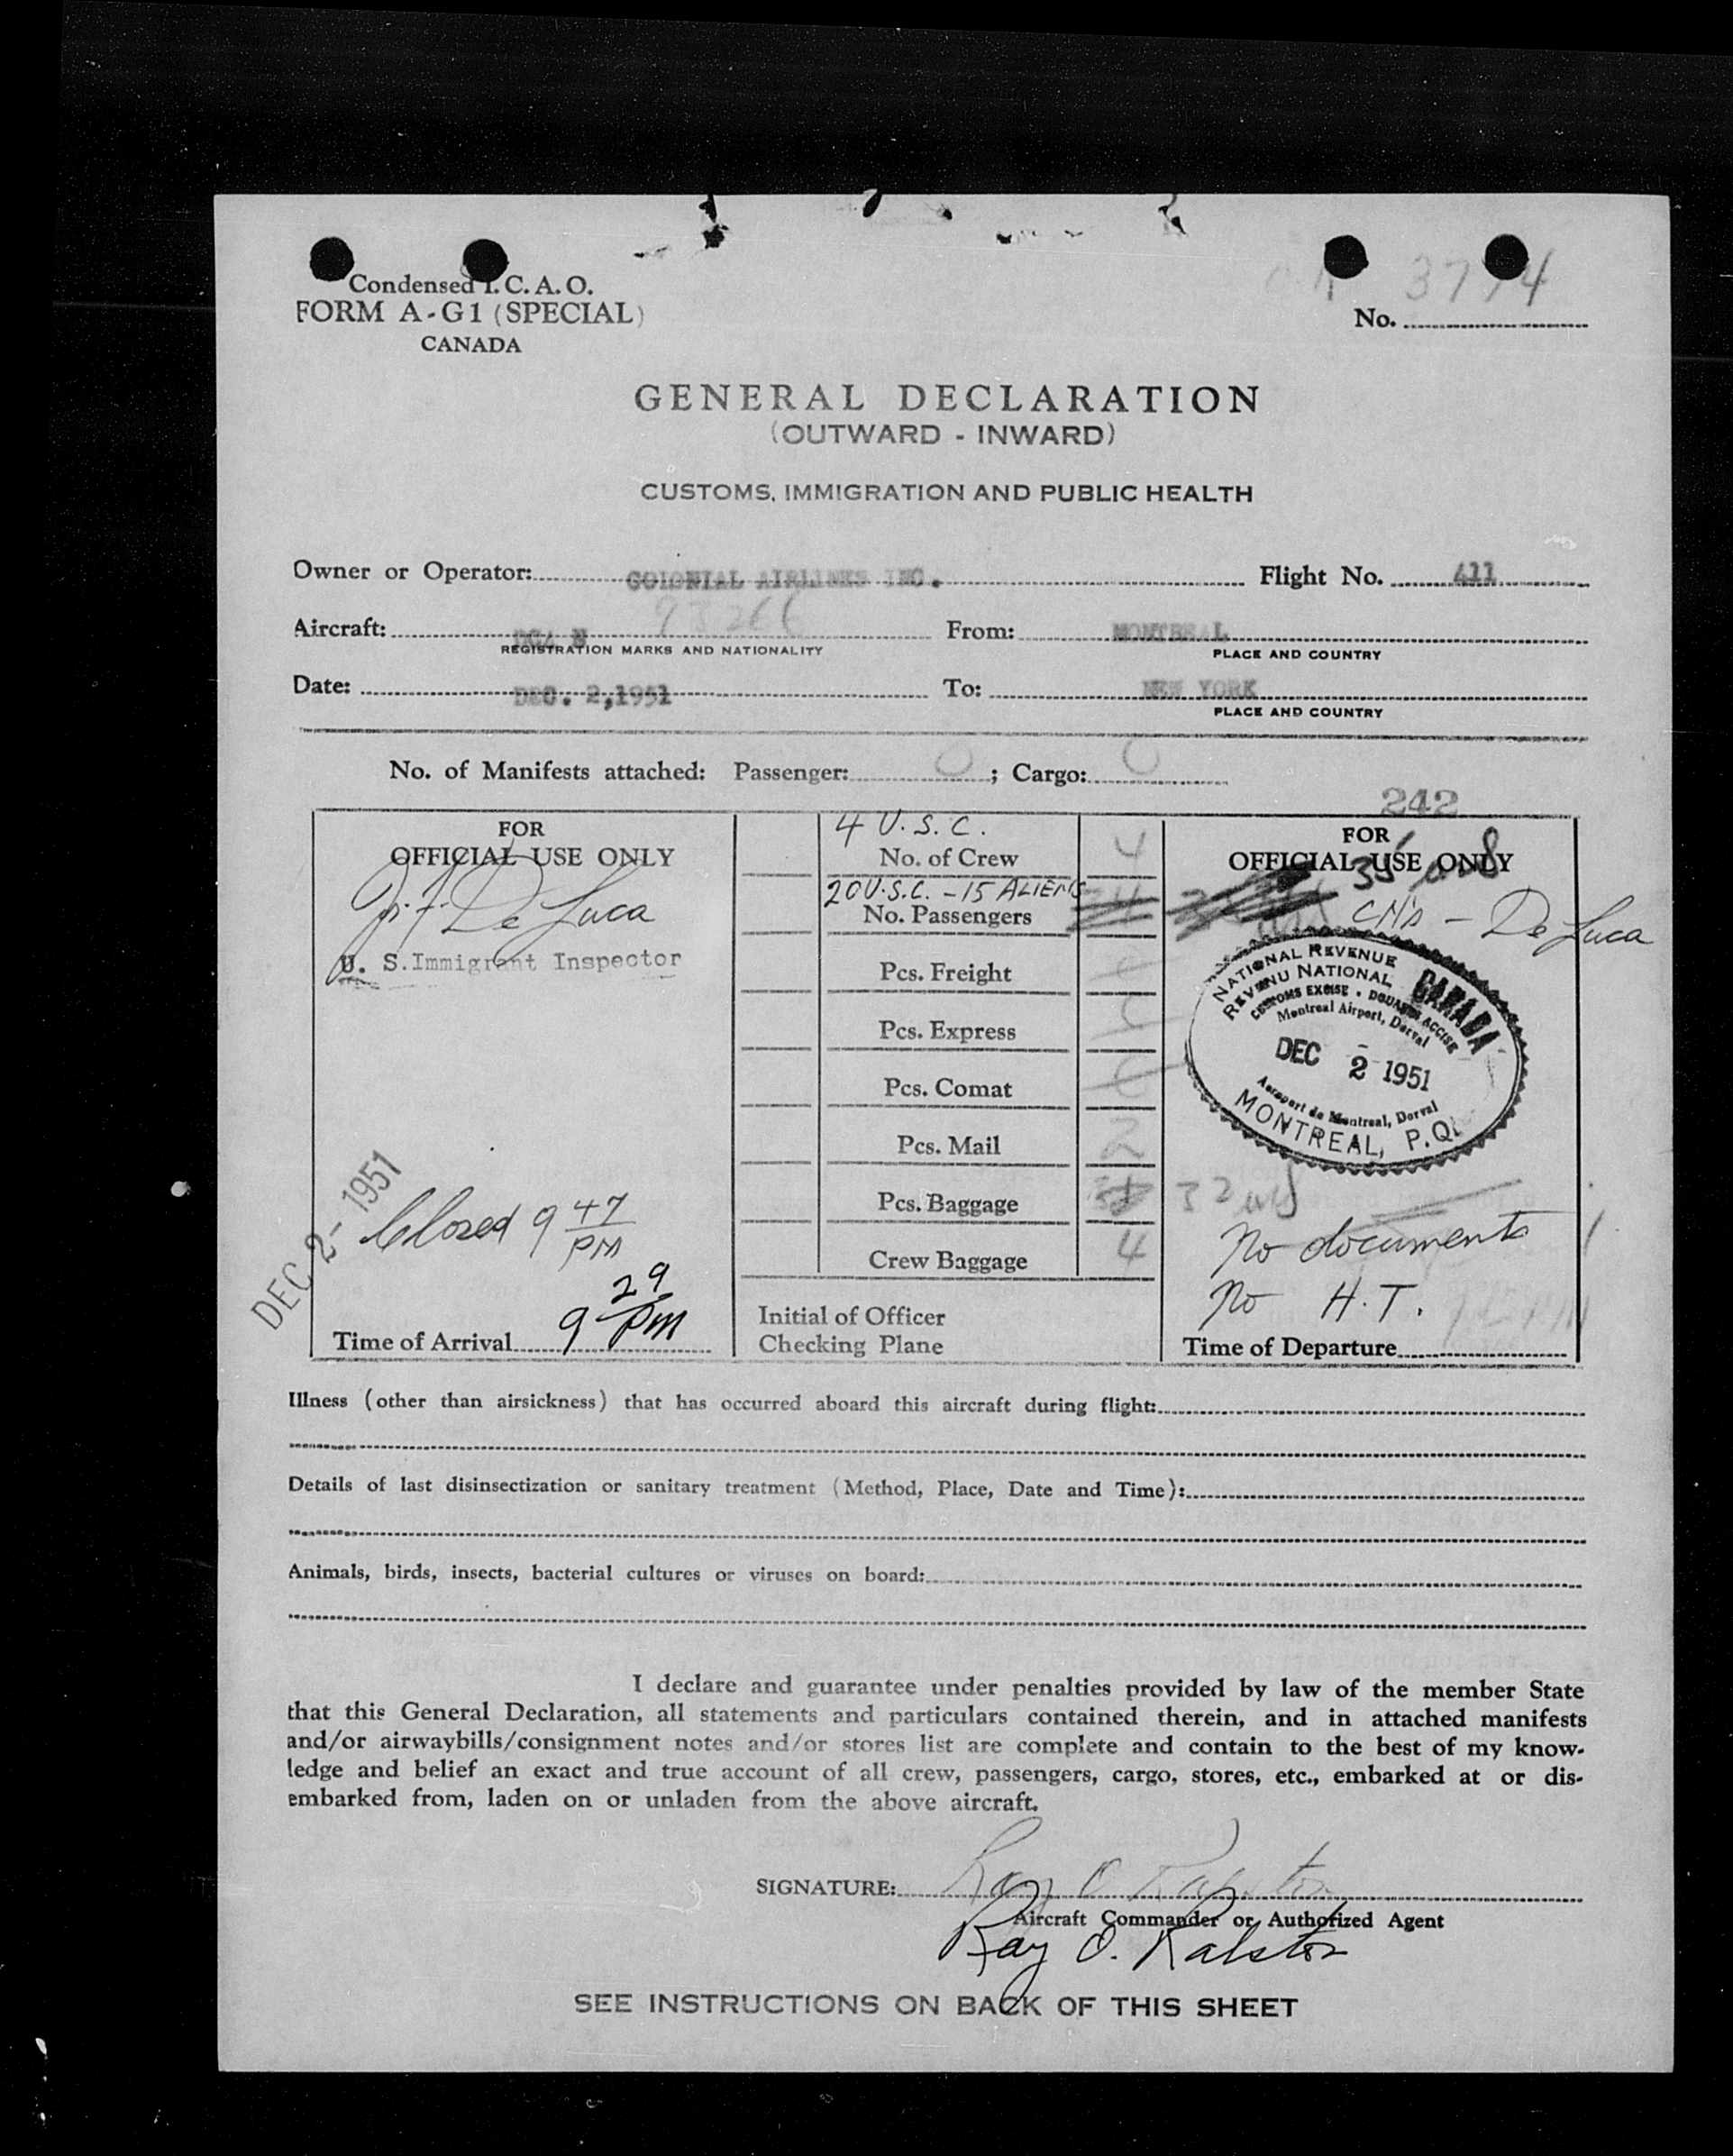 Condensed I. C. A. O.
FORM A-G1 (SPECIAL)
CANADA
No.
GENERAL DECLARATION
(OUTWARD - INWARD)
CUSTOMS, IMMIGRATION AND PUBLIC HEALTH
Owner or Operator: COLONIAL AIRLINES INC. Flight No. 411
Aircraft: DC4 N From: MONTREAL
REGISTRATION MARKS AND NATIONALITY PLACE AND COUNTRY
Date: DEC. 2,1951 To: NEW YORK
PLACE AND COUNTRY
No. of Manifests attached: Passenger: 0 ; Cargo: 0
242
FOR
OFFICIAL USE ONLY
J. F. De Luca
U. S. Immigrant Inspector
DEC 2- 1951
Closed 9 47 PM
Time of Arrival 9 29 PM
4 U.S.C.
No. of Crew 4
20 U.S.C. - 15 ALIENS
No. Passengers
Pcs. Freight
Pcs. Express
Pcs. Comat
Pcs. Mail 2
Pcs. Baggage 32
Crew Baggage 4
Initial of Officer
Checking Plane
FOR
OFFICIAL USE ONLY
35
De Luca
NATIONAL REVENUE
REVENU NATIONAL
CANADA
CUSTOMS EXCISE • DOUANES ACCISE
Montreal Airport, Dorval
DEC 2 1951
Aeroport de Montreal, Dorval
MONTREAL, P.Q.
No documents
No H.T.
Time of Departure
Illness (other than airsickness) that has occurred aboard this aircraft during flight:
Details of last disinsectization or sanitary treatment (Method, Place, Date and Time):
Animals, birds, insects, bacterial cultures or viruses on board:
I declare and guarantee under penalties provided by law of the member State
that this General Declaration, all statements and particulars contained therein, and in attached manifests
and/or airwaybills/consignment notes and/or stores list are complete and contain to the best of my know-
ledge and belief an exact and true account of all crew, passengers, cargo, stores, etc., embarked at or dis-
embarked from, laden on or unladen from the above aircraft.
SIGNATURE: Ray O Ralston
Aircraft Commander or Authorized Agent
Ray O. Ralston
SEE INSTRUCTIONS ON BACK OF THIS SHEET